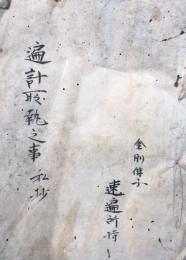 遍計所執之事 私抄
金剛佛子
速遍所持